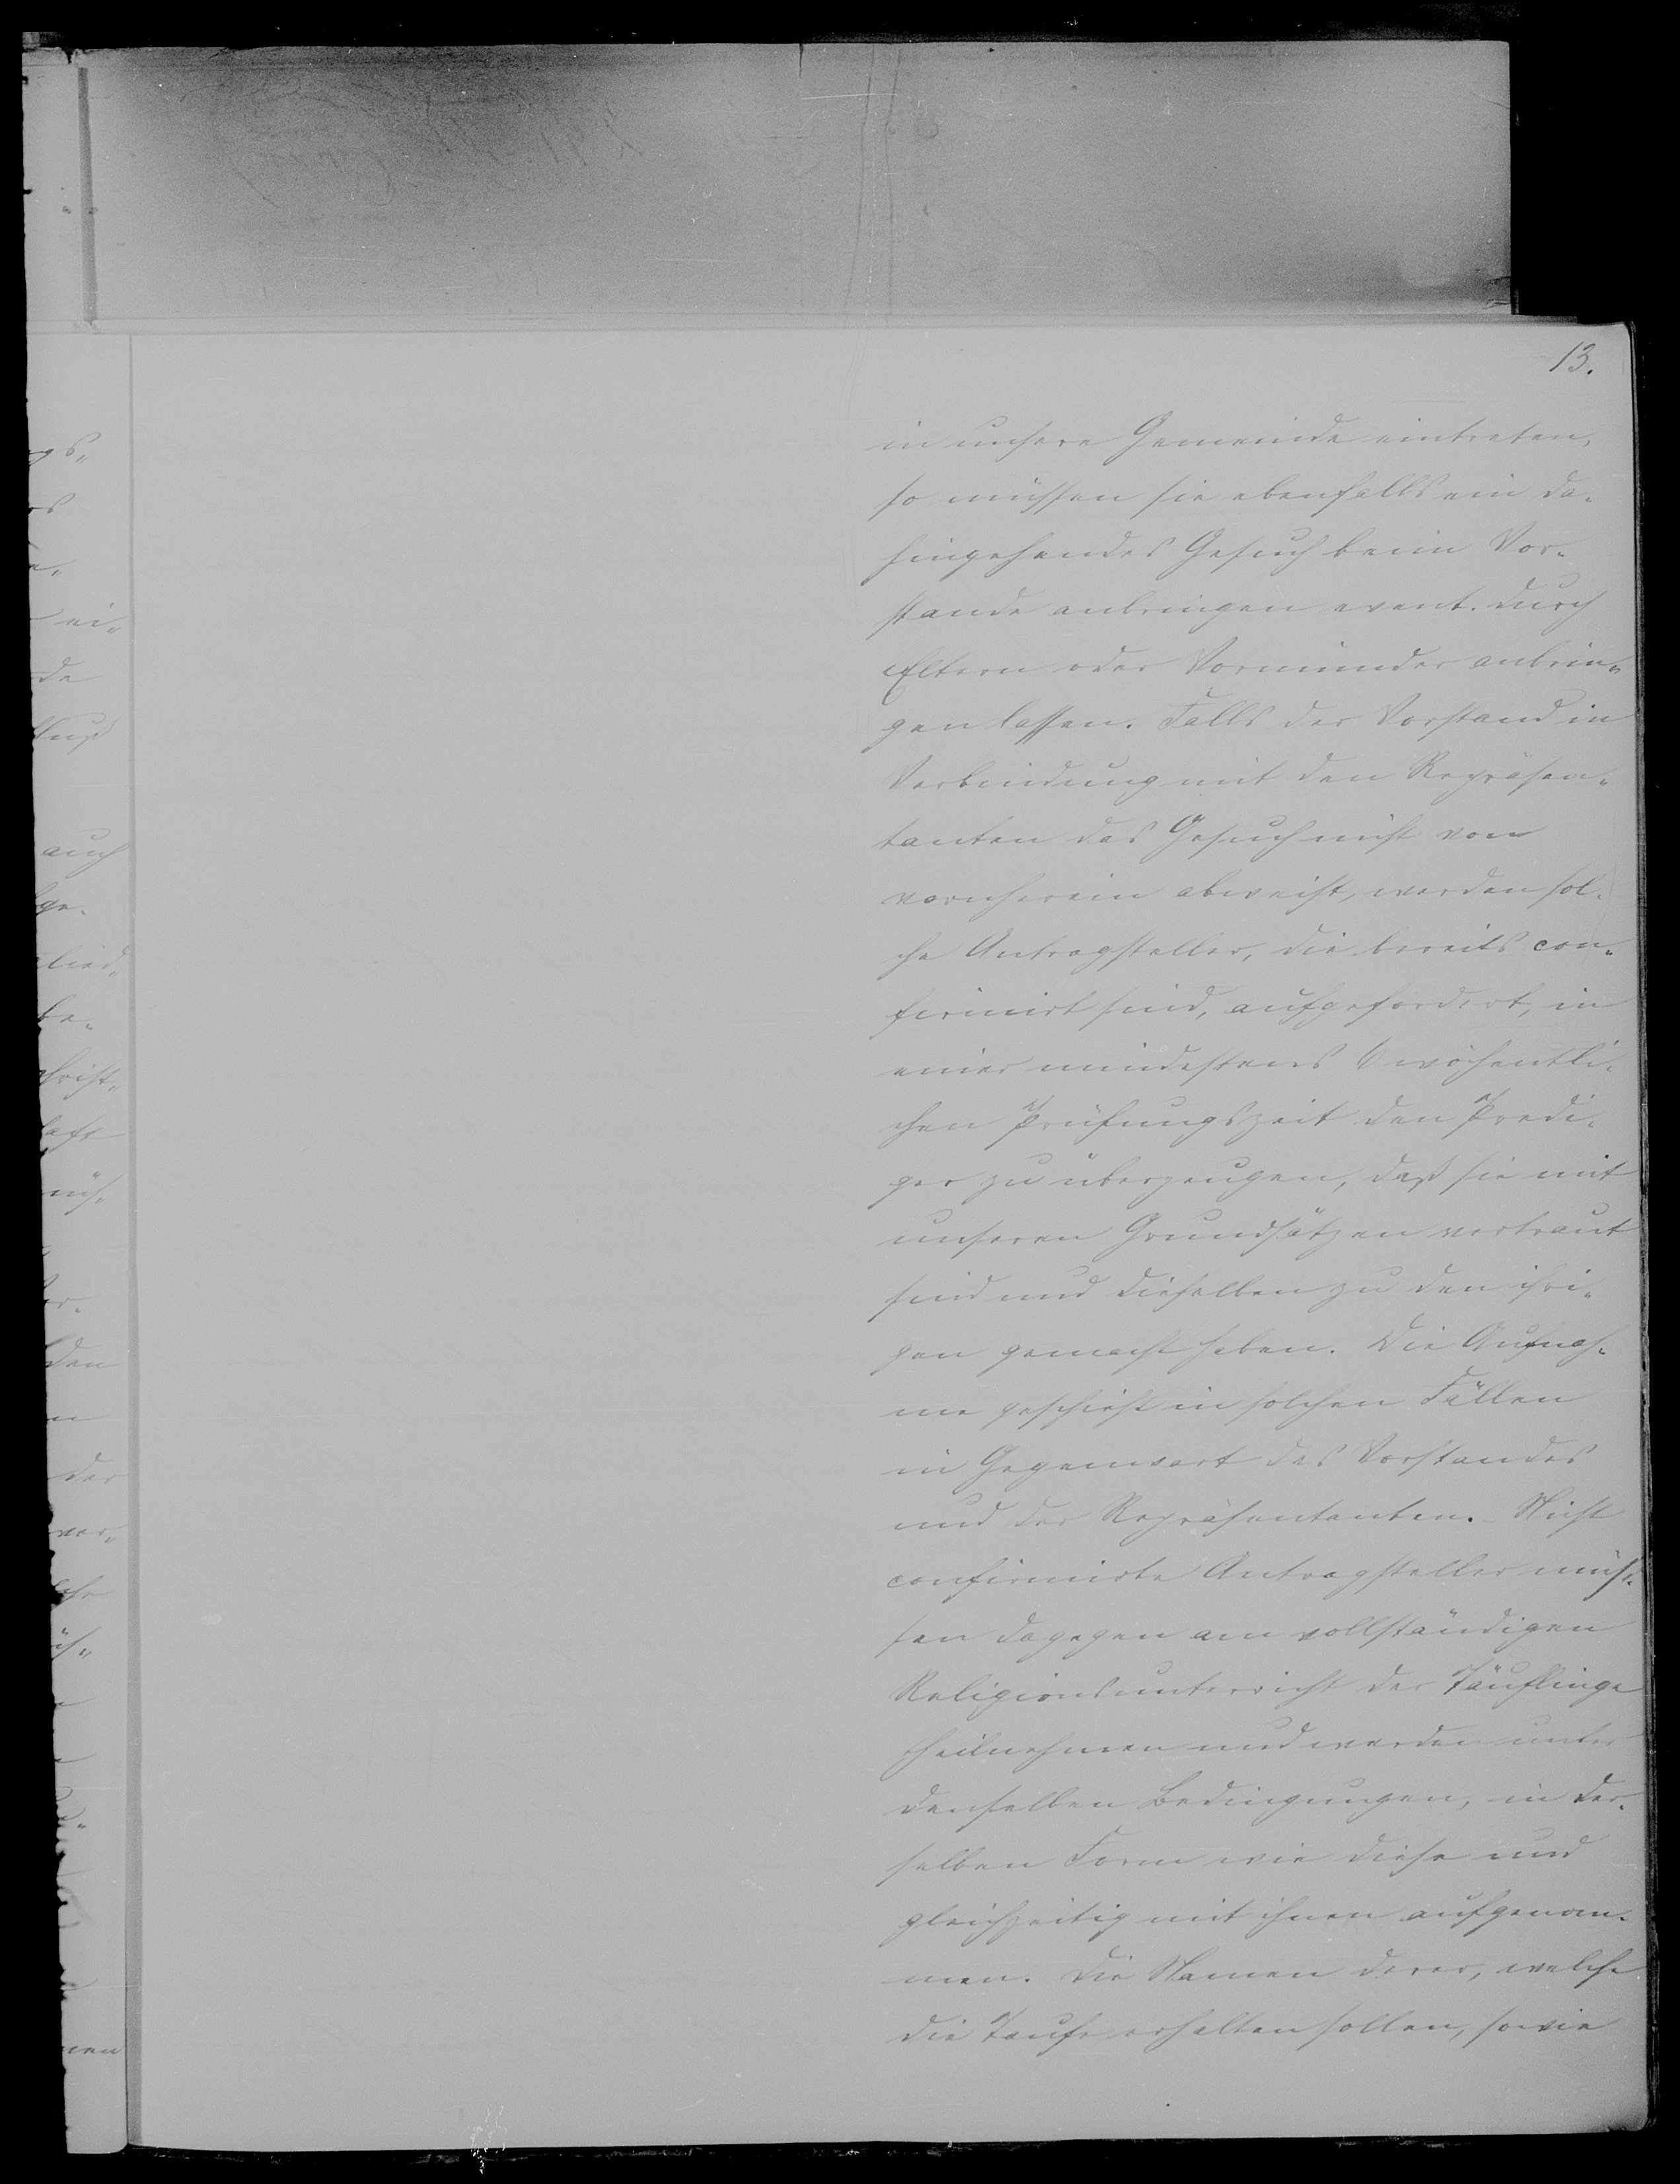 13.
in unsere Gemeinde eintreten,
so müssen sie ebenfalls ein da-
hingehendes Gesuch beim Vor-
stande anbringen event. durch
Eltern oder Vormünder anbrin-
gen lassen. Falls der Vorstand in
Verbindung mit den Repräsen-
tanten das Gesuch nicht von
vornherein abweist, werden sol-
che Antragsteller, die bereits con-
firmirt sind, aufgefordert, in
einer mindestens 6 wöchentli-
chen Prüfungszeit den Predi-
ger zu überzeugen, daß sie mit
unseren Grundsätzen vertraut
sind und dieselben zu den ihri-
gen gemacht haben. Die Aufnah-
me geschieht in solchen Fällen
in Gegenwart des Vorstandes
und der Repräsentanten. Nicht
confirmirte Antragsteller müs-
sen dagegen am vollständigen
Religionsunterricht der Täuflinge
theilnehmen und werden unter
denselben Bedingungen, in der-
selben Form wie diese und
gleichzeitig mit ihnen aufgenom-
men. Die Namen derer, welche
die Taufe erhalten sollen, sowie